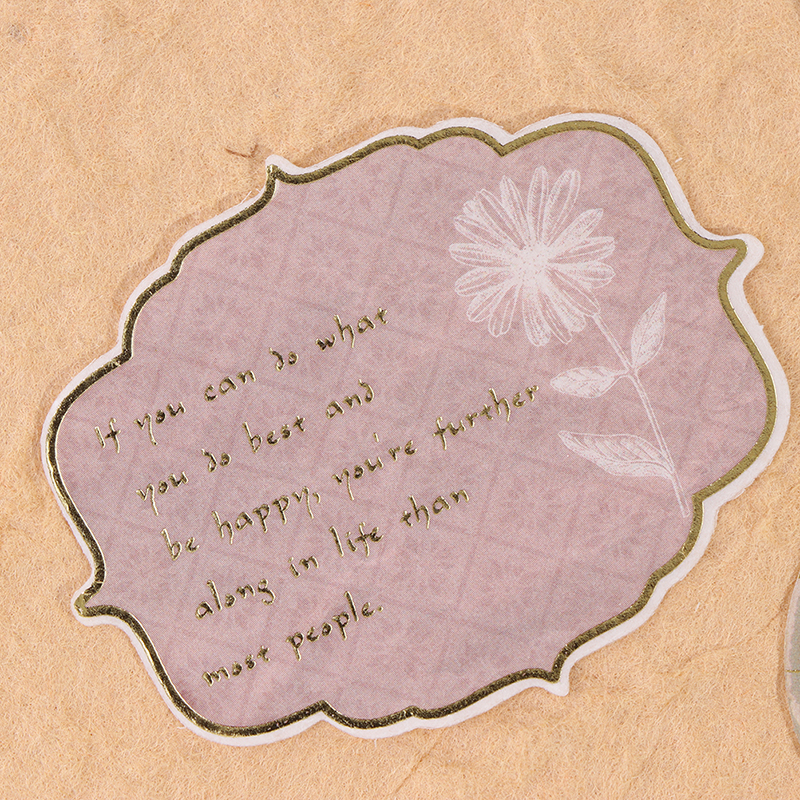 If you can do what
you do best and
be happy, you're further
along in life than
most people.